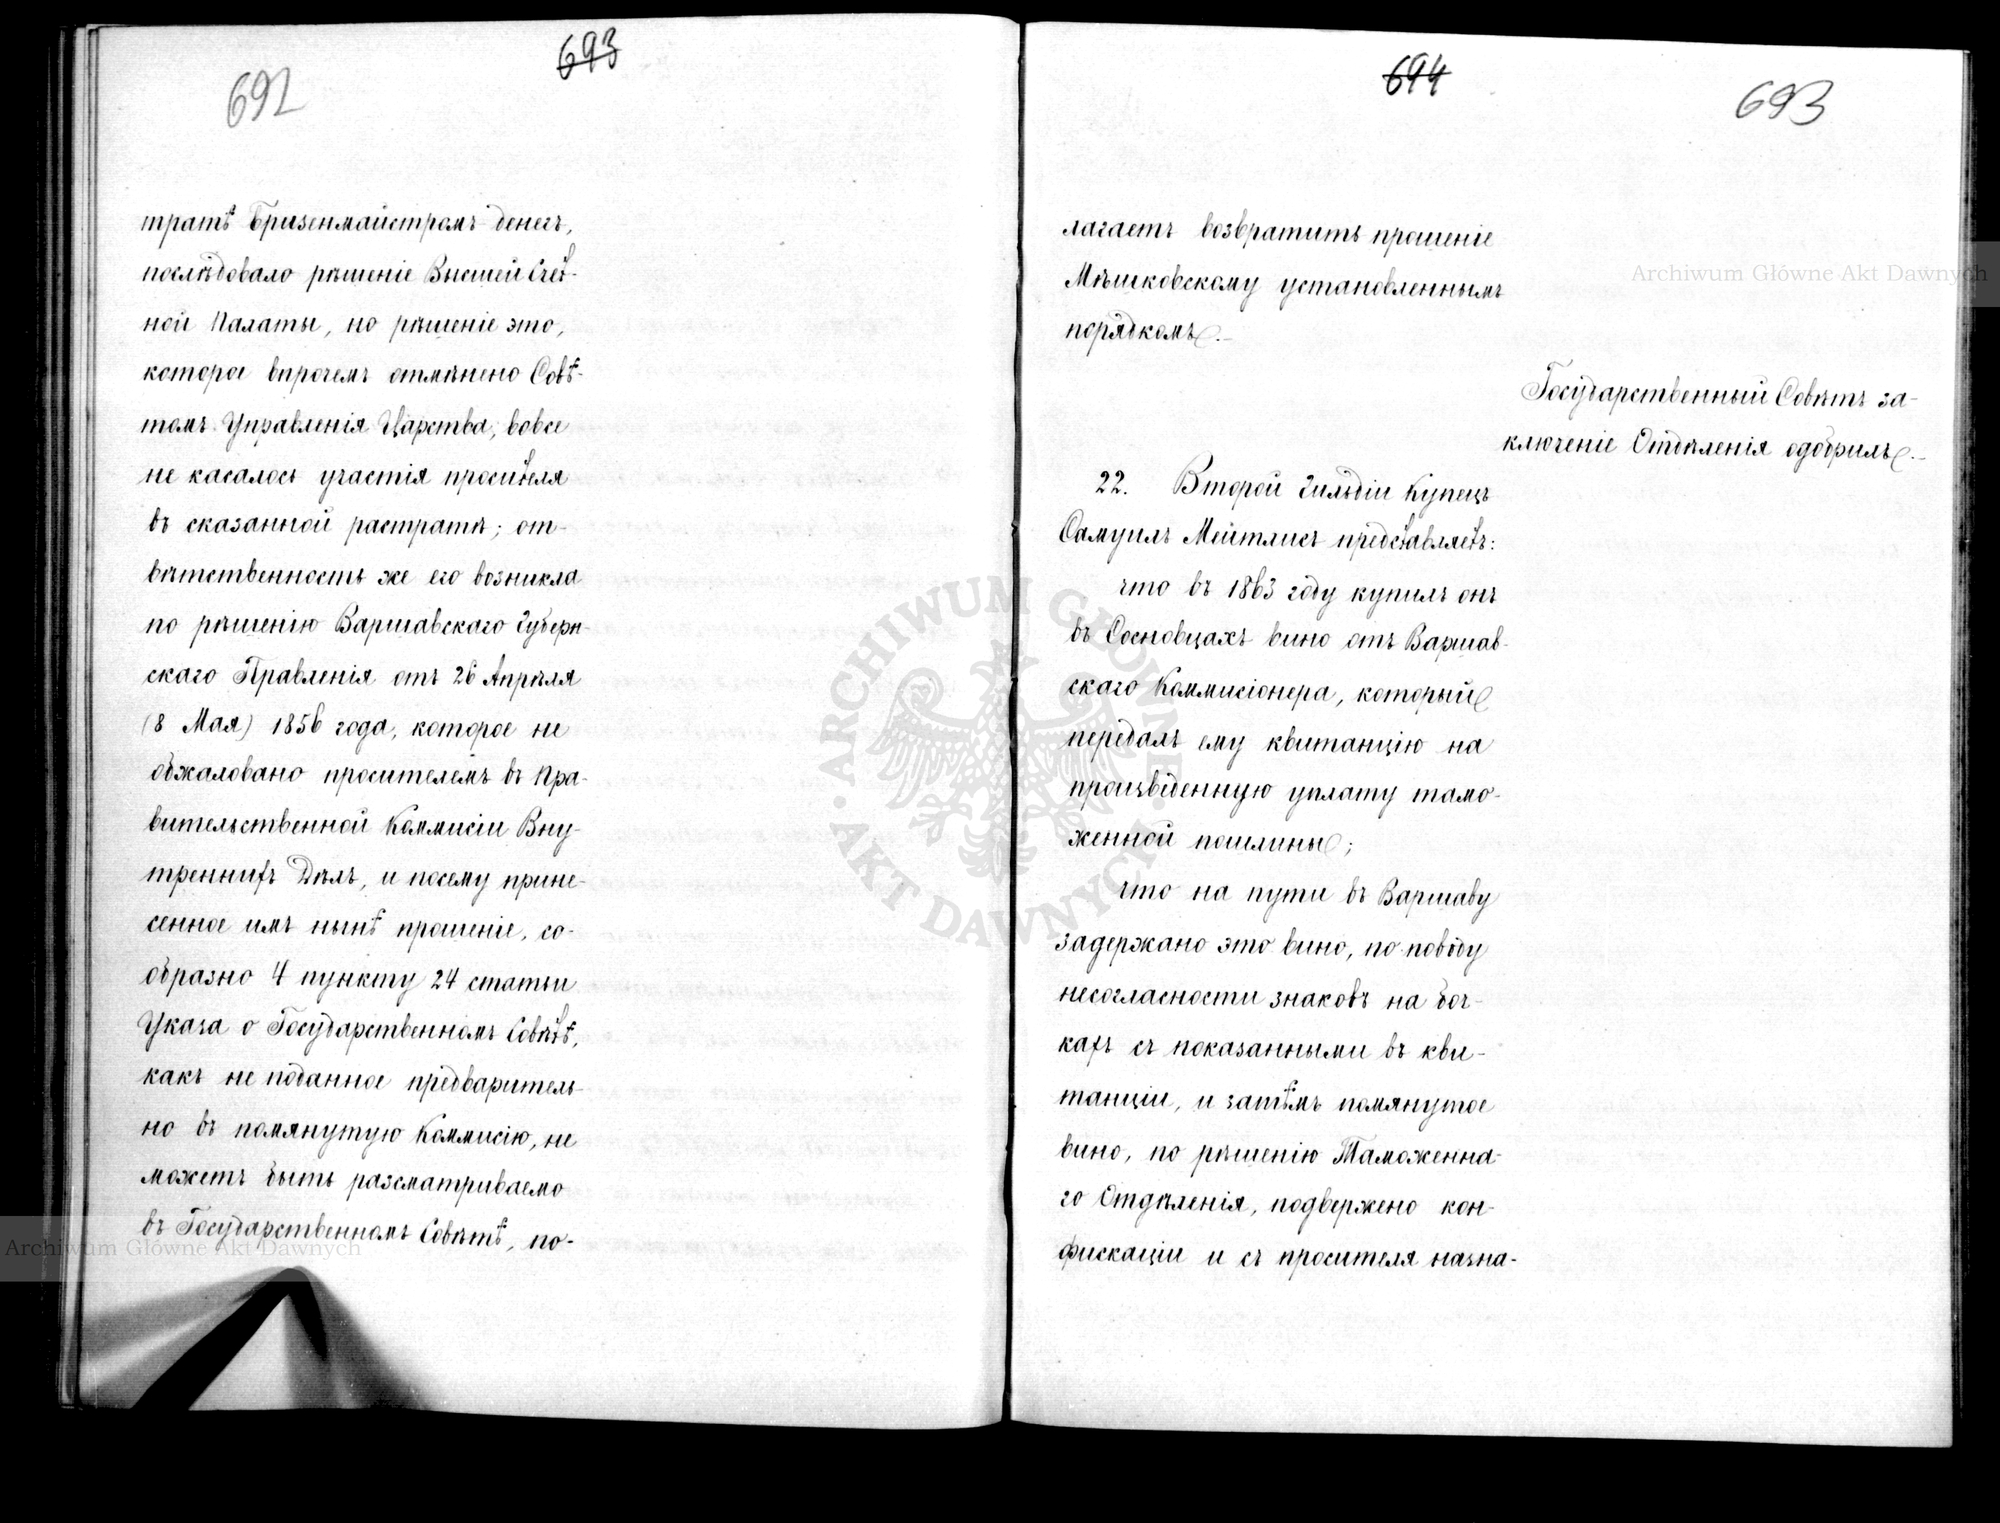 692
693
тратѣ Бризенмайстромъ денегъ,
послѣдовало рѣшеніе Высшей Счет-
ной Палаты, но рѣшеніе это,
которое впрочемъ отмѣнено Совѣ-
томъ Управленія Царства, вовсе
не касалось участія просителя
въ сказанной растратѣ; от-
вѣтственность же его возникла
по рѣшенію Варшавскаго Губерн-
скаго Правленія отъ 26 Апрѣля
(8 Мая) 1856 года, которое не
обжаловано просителемъ въ Пра-
вительственной Коммисіи Вну-
треннихъ Дѣлъ, и посему прине-
сенное имъ нынѣ прошеніе, со-
образно 4 пункту 24 статьи
Указа о Государственномъ Совѣтѣ,
какъ не поданное предваритель-
но въ помянутую Коммисію, не
можетъ быть разсматриваемо
въ Государственномъ Совѣтѣ, по-
694
693
лагаетъ возвратить прошеніе
Мѣшковскому установленнымъ
порядкомъ.-
Государственный Совѣтъ за-
ключеніе Отдѣленія одобрилъ.-
22. Второй Гильдіи Купецъ
Самуилъ Мейтлисъ представляетъ:
что въ 1863 году купилъ онъ
въ Сосновцахъ вино отъ Варшав-
скаго Коммисіонера, который
передалъ ему квитанцію на
произведенную уплату тамо-
женной пошлины;
что на пути въ Варшаву
задержано это вино, по поводу
несогласности знаковъ на боч-
кахъ съ показанными въ кви-
танціи, и затѣмъ помянутое
вино, по рѣшенію Таможенна-
го Отдѣленія, подвержено кон-
фискаціи и съ просителя назна-
Archiwum Główne Akt Dawnych
Archiwum Główne Akt Dawnych
ARCHIWUM GŁÓWNE · AKT DAWNYCH ·